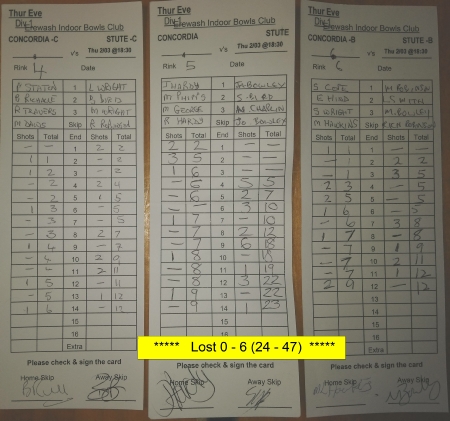 Thur Eve
Div-1
Erewash Indoor Bowls Club
CONCORDIA -C STUTE -C
v's Thu 2/03 @18:30
Rink 4 Date
1 L WRIGHT
2
R TRAVERS 3 M WRIGHT
Skip
Shots Total End Shots Total
- - 1 2 2
1 1 2 - 2
1 2 3 - 2
- 2 4 2 4
- 2 5 1 5
1 3 6 - 5
- 3 7 - 5
- 3 8 2 7
1 4 9 - 7
- 4 10 2 9
- 4 11 2 11
1 5 12 - 11
- 5 13 1 12
1 6 14 - 12
15
16
Extra
Please check & sign the card
Home Skip Away Skip
Thur Eve
Div-1
Erewash Indoor Bowls Club
CONCORDIA STUTE
v's Thu 2/03 @18:30
Rink 5 Date
J HARDY 1
2 S. BIRD
M GEORGE 3 CHAPLIN
R HARDS Skip Jo BOWLEY
Shots Total End Shots Total
2 2 1 - -
3 5 2 - -
1 6 3 - -
- 6 4 5 5
- 6 5 2 7
- 6 6 3 10
1 7 7 - 10
- 7 8 2 12
- 7 9 6 18
1 8 10 - 18
- 8 11 1 19
- 8 12 3 22
1 9 13 - 22
- 9 14 1 23
15
16
Please check & sign the card
Home Skip Away Skip
Thur Eve
Div-1
Erewash Indoor Bowls Club
CONCORDIA -B STUTE -B
v's Thu 2/03 @18:30
Rink 6 Date
S COPE 1
2 L SMITH
S WRIGHT 3 M BOWLEY
M HAWKINS Skip
Shots Total End Shots Total
1 1 1 - -
- 1 2 2 2
- 1 3 3 5
2 3 4 - 5
2 5 5 - 5
1 6 6 - 5
- 6 7 3 8
1 7 8 - 8
- 7 9 1 9
- 7 10 2 11
- 7 11 1 12
2 9 12 - 12
13
14
15
16
Extra
Please check & sign the card
Home Skip Away Skip
***** Lost 0 - 6 (24 - 47) *****